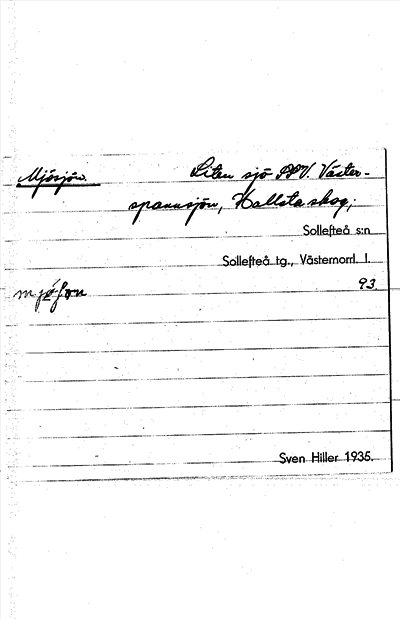 Mjösjön. Liten sjö SSV. Väster-
spannsjön, Hallsta skog,;
Sollefteå s:n
Sollefteå tg., Västernorrl. l.
mjö̀ſon 93.
Sven Hiller 1935.